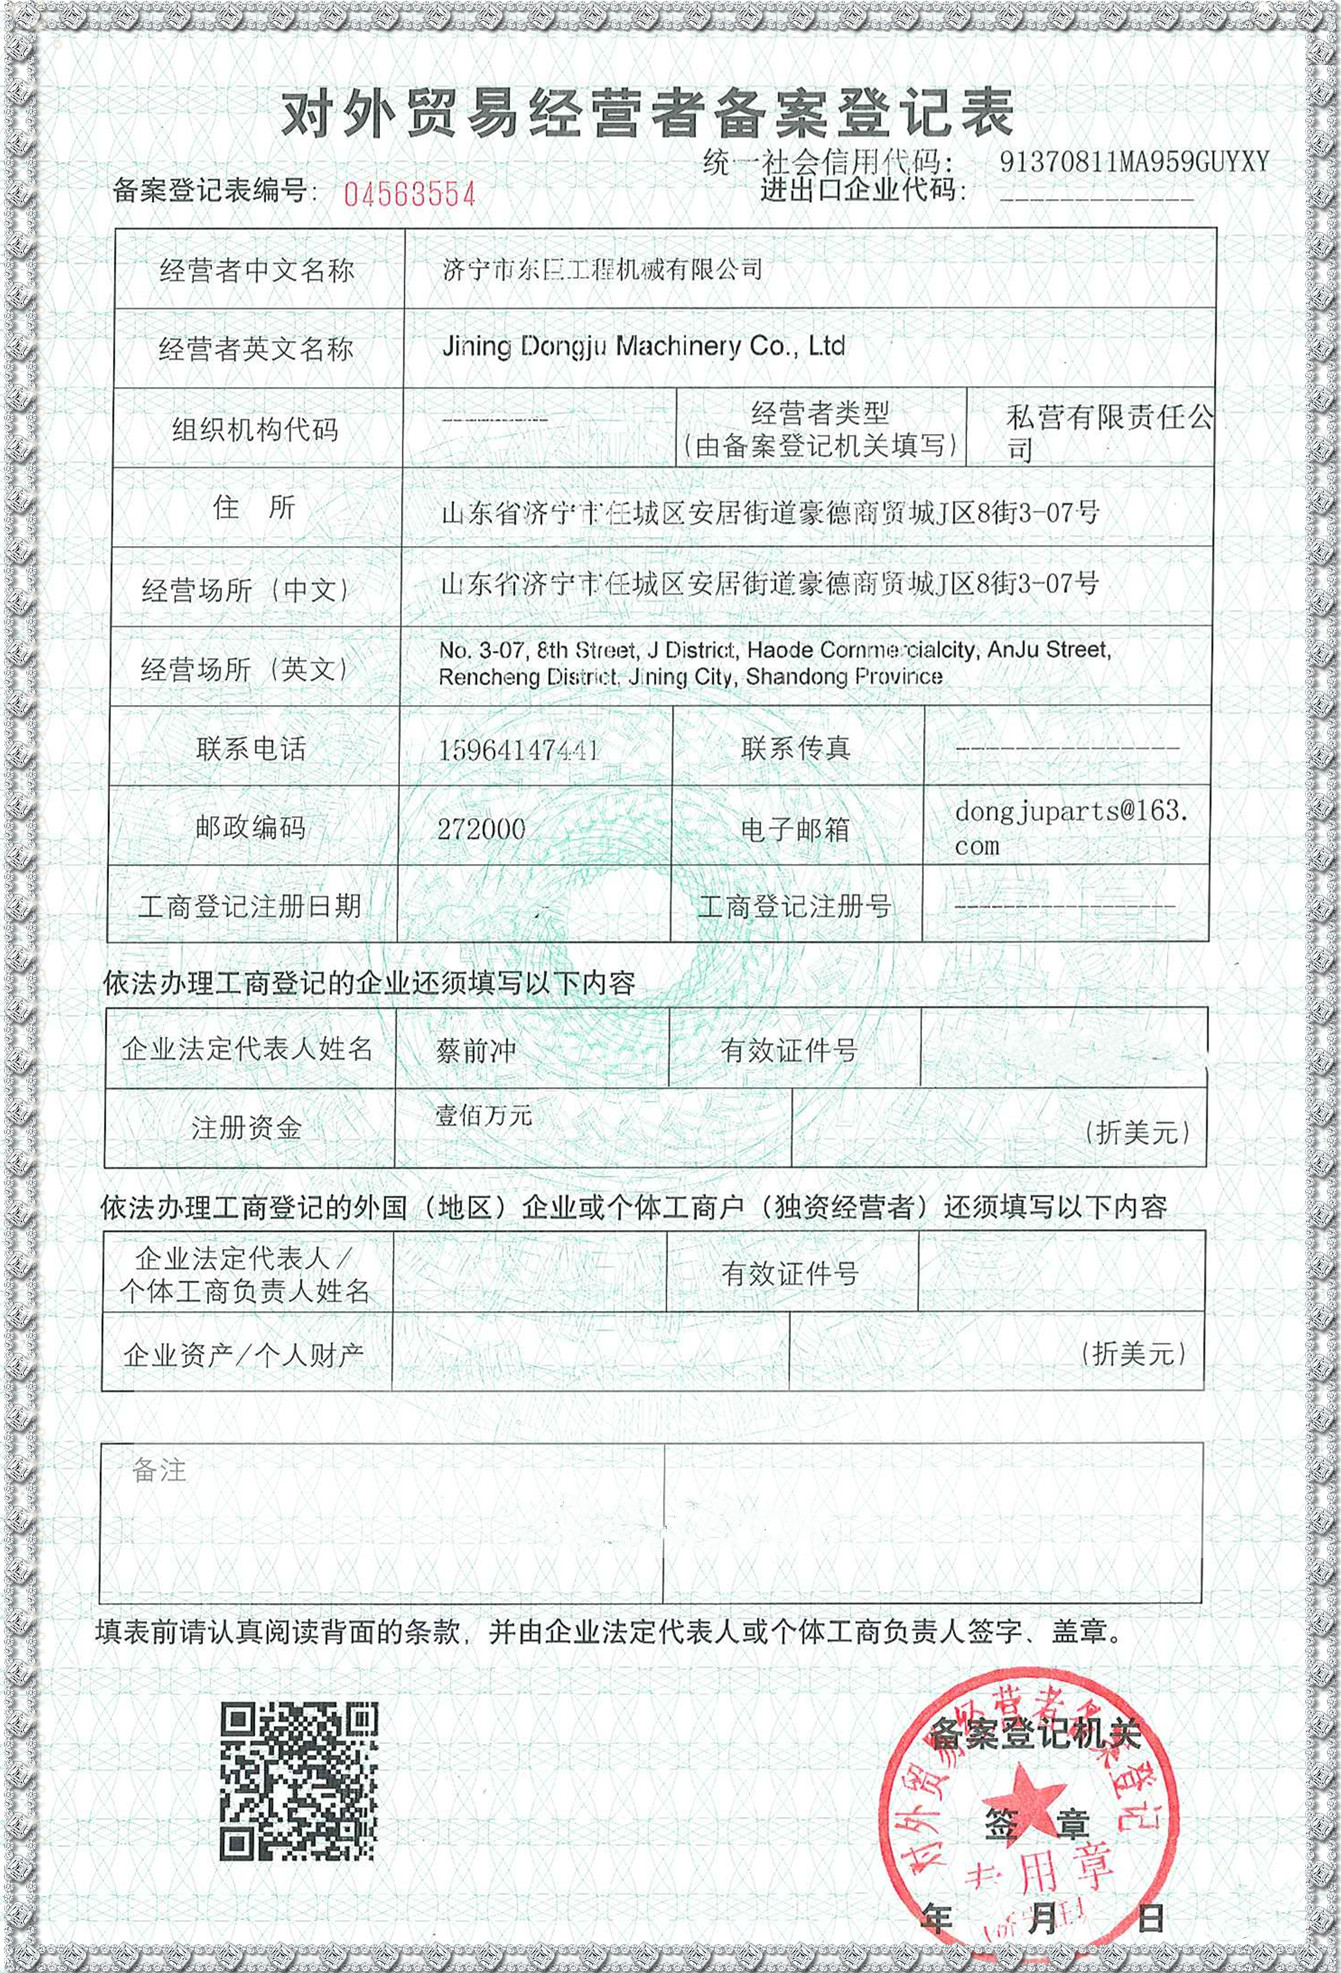 对外贸易经营者备案登记表
统一社会信用代码： 91370811MA959GUYXY
备案登记表编号： 04563554
进出口企业代码： -------------
经营者中文名称 济宁市东巨工程机械有限公司
经营者英文名称 Jining Dongju Machinery Co., Ltd
组织机构代码 ---------- 经营者类型 私营有限责任公
(由备案登记机关填写) 司
住 所 山东省济宁市任城区安居街道豪德商贸城J区8街3-07号
经营场所（中文） 山东省济宁市任城区安居街道豪德商贸城J区8街3-07号
经营场所（英文） No. 3-07, 8th Street, J District, Haode Commercialcity, AnJu Street,
Rencheng District, Jining City, Shandong Province
联系电话 15964147441 联系传真 ----------------
邮政编码 272000 电子邮箱 dongjuparts@163.
com
工商登记注册日期 工商登记注册号 ----------------
依法办理工商登记的企业还须填写以下内容
企业法定代表人姓名 蔡前冲 有效证件号
注册资金 壹佰万元 (折美元)
依法办理工商登记的外国（地区）企业或个体工商户（独资经营者）还须填写以下内容
企业法定代表人/
个体工商负责人姓名 有效证件号
企业资产/个人财产 (折美元)
备注
填表前请认真阅读背面的条款，并由企业法定代表人或个体工商负责人签字、盖章。
对外贸易经营者备案登记
备案登记机关
签 章
专用章
年 月 日